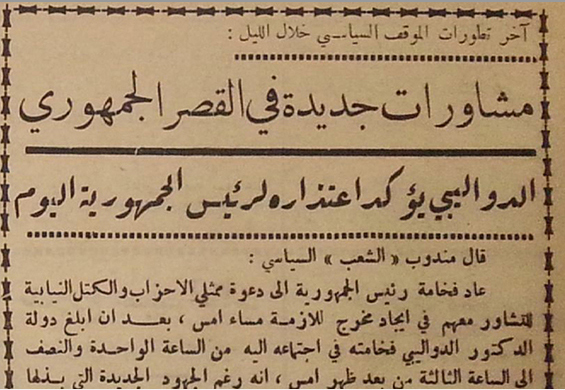 آخر تطورات الموقف السياسي خلال الليل :
مشاورات جديدة في القصر الجمهوري
الدواليبي يؤكد اعتذاره لرئيس الجمهورية اليوم
قال مندوب « الشعب » السياسي :
عاد فخامة رئيس الجمهورية الى دعوة ممثلي الاحزاب والكتل النيابية
للتشاور معهم في ايجاد مخرج للازمة مساء امس ، بعد ان ابلغ دولة
الدكتور الدواليبي فخامته في اجتماعه اليه من الساعة الواحدة والنصف
الى الساعة الثالثة من بعد ظهر امس ، انه رغم الجهود الجديدة التي بذلها